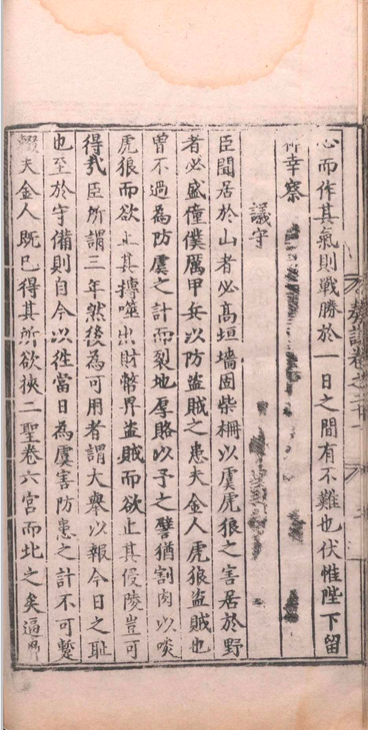 心而作其氣則戰勝於一日之間有不難也伏惟陛下留
神幸察
議守
臣聞居於山者必高垣墻固柴柵以虞虎狼之害居於野
者必盛僮僕厲甲兵以防盜賊之患夫金人虎狼盜賊也
曾不過為防虞之計而裂地厚賂以予之譬猶割肉以啖
虎狼而欲止其搏噬出財幣畀盜賊而欲止其侵陵豈可
得㦲臣所謂三年然後為可用者謂大舉以報今日之恥
也至於守備則自今以徃當日為虞害防患之計不可蹔
輟夫金人既已得其所欲挾二聖卷六宮而北之矣逼
奏議卷之二十